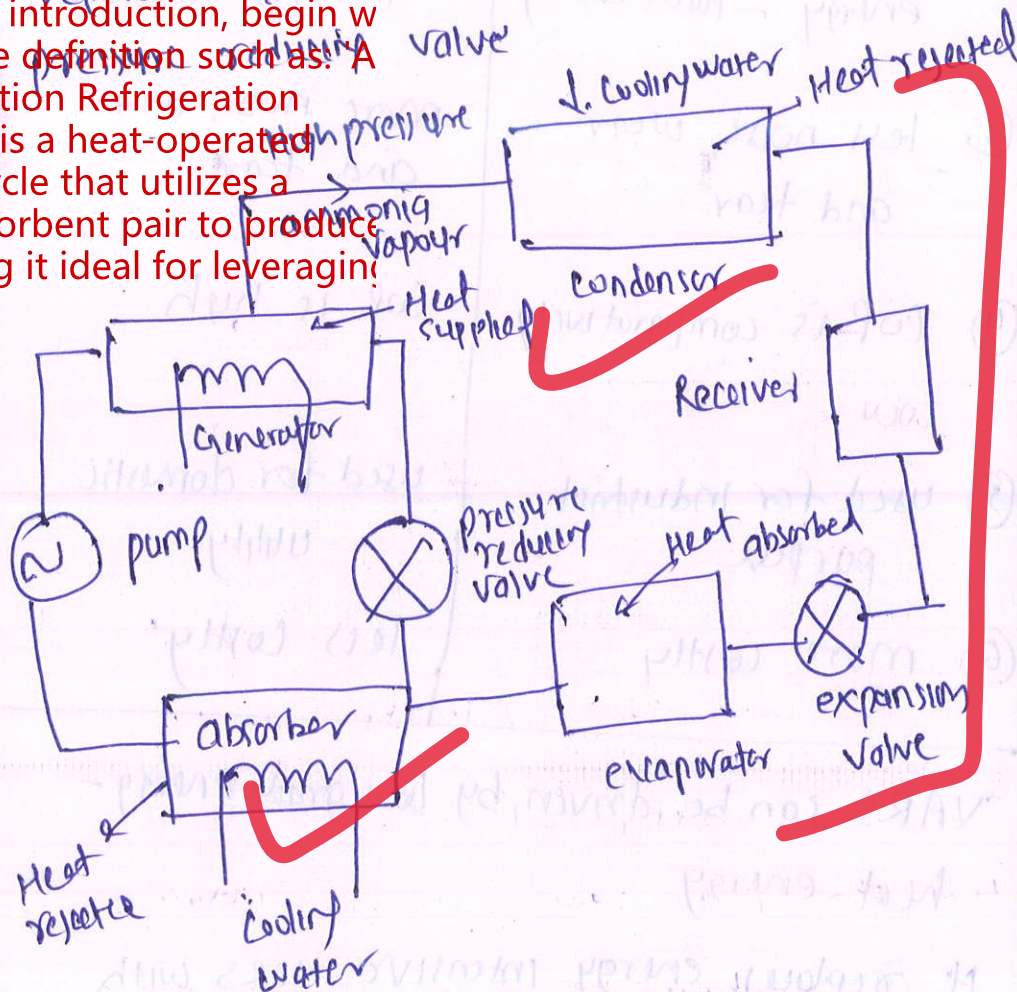 introduction, begin w
e definition such as: 'A
pressure reducing valve
tion Refrigeration
is a heat-operated
rcle that utilizes a
orbent pair to produce
g it ideal for leveraging
High pressure
ammonia
vapour
↓. Cooling water
Heat rejected
Condenser
Heat
supplied
Generator
Receiver
pump
Pressure
reducing
valve
Heat absorbed
absorber
evapwrater
expansion
valve
Heat
rejected
Cooling
water